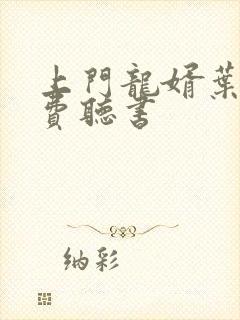 上門龍婿葉
費聽書
纳彩